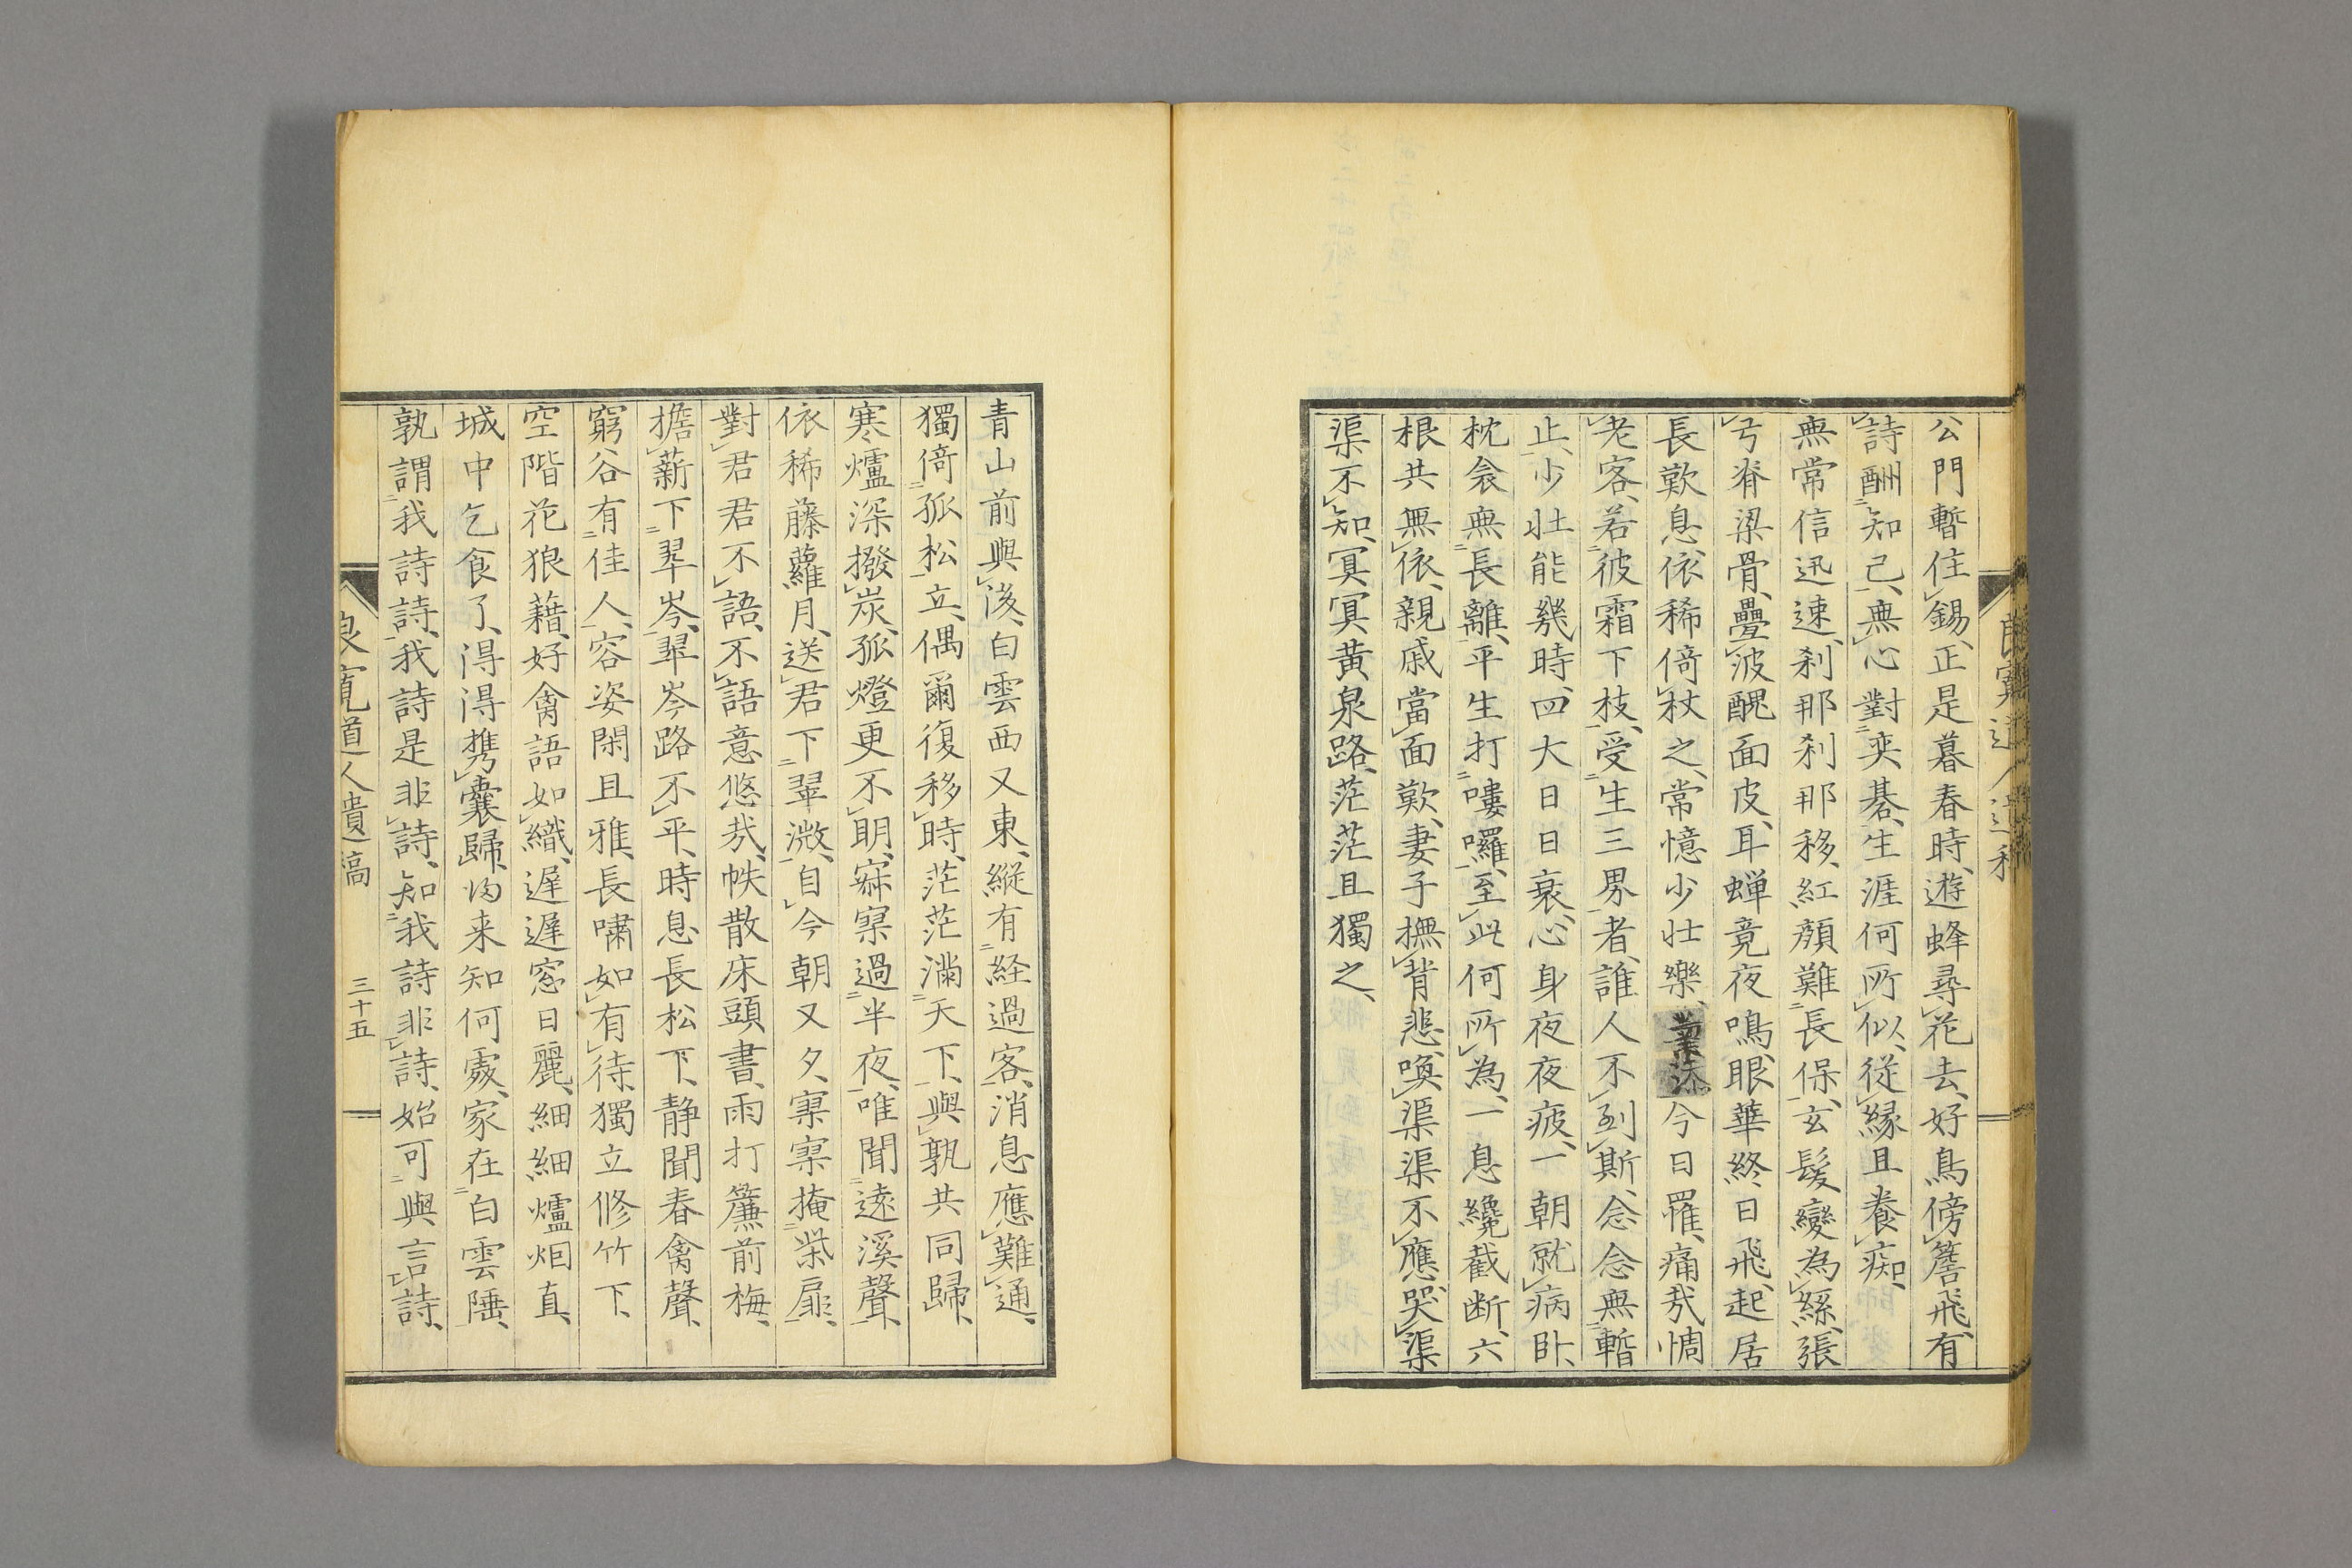 公門暫住錫、正是暮春時、遊蜂尋花去、好鳥傍簷飛、有
詩酬知己、無心對奕碁、生涯何所似、從縁且養痴、
無常信迅速、刹那刹那移、紅顔難長保、玄髪變為絲、張
弓脊梁骨、疊波醜面皮、耳蝉竟夜鳴、眼華終日飛、起居
長歎息、依稀倚杖之、常憶少壮樂、添今日罹、痛哉惆
老客、若彼霜下枝、受生三界者、誰人不到斯、念念無暫
止、少壮能幾時、四大日日衰、心身夜夜疲、一朝就病卧、
枕衾無長離、平生打嘍囉、至此何所為、一息纔截断、六
根共無依、親戚當面歎、妻子撫背悲、喚渠渠不應、哭渠
渠不知、冥冥黄泉路、茫茫且獨之、
青山前與後、白雲西又東、縦有経過客、消息應難通、
獨倚孤松立、偶爾復移時、茫茫滿天下、與孰共同歸、
寒爐深撥炭、孤燈更不明、寂寞過半夜、唯聞遠溪聲、
依稀藤蘿月、送君下翠微、自今朝又夕、寞寞掩柴扉、
對君君不語、不語意悠哉、帙散床頭書、雨打簾前梅、
擔薪下翠岑、翠岑路不平、時息長松下、静聞春禽聲、
窮谷有佳人、容姿閑且雅、長嘯如有待、獨立修竹下、
空階花狼藉、好禽語如織、遅遅窓日麗、細細爐烟直、
城中乞食了、得得携囊歸、歸来知何處、家在白雲陲、
孰謂我詩詩、我詩是非詩、知我詩非詩、始可與言詩、
良寛道人遺稿
三十五